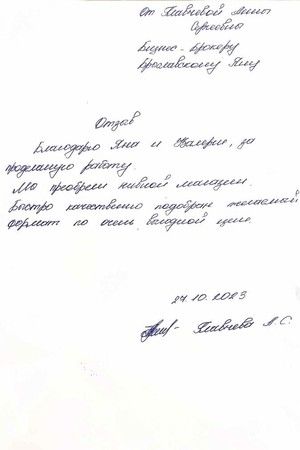 От Плавчевой Анны
Сергеевны
Бизнес-Брокеру
Брославскому Яну
Отзыв
Благодарю Яна и Валерию, за
проделанную работу.
Мы преобрели пивной магазин.
Быстро качественно подобран желаемый
формат по очень выгодной цене.
27.10.2023
Плавчева А.С.